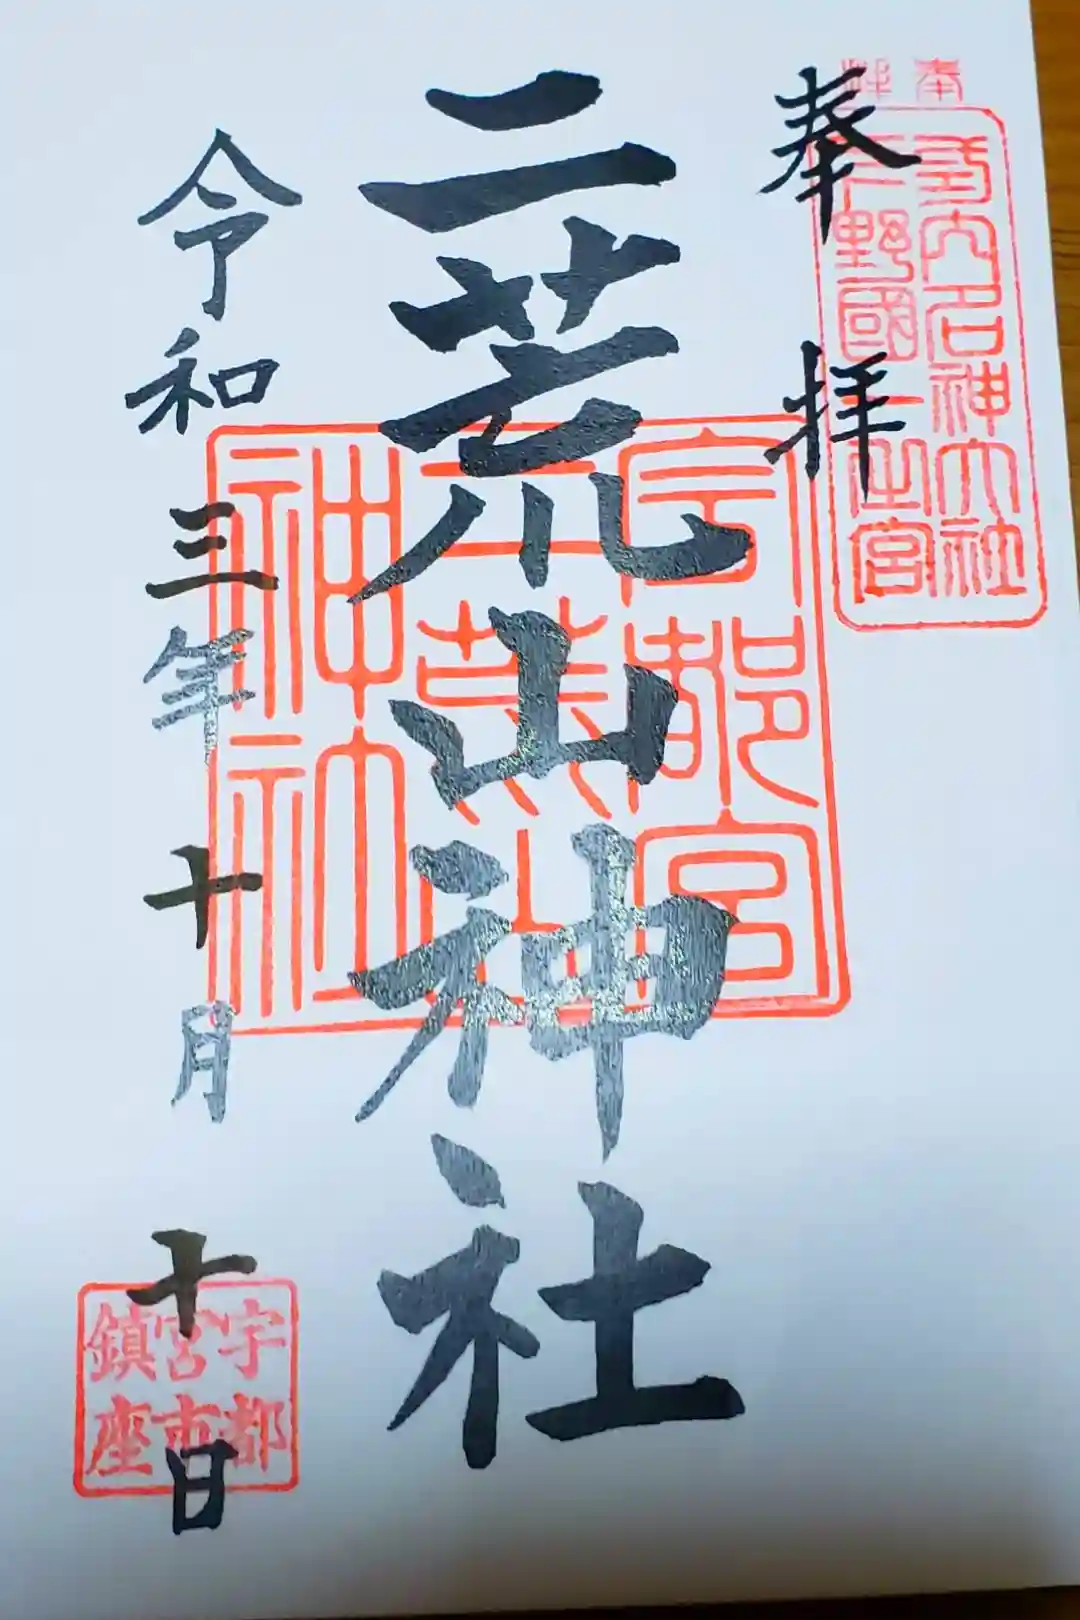 奉拝
奉拝
式内名神大社
下野國一之宮
二荒山神社
宇都宮
二荒山
神社
令和三年十月十日
宇都
宮市
鎮座